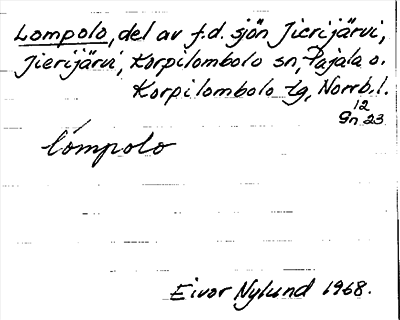 Lompolo, del av f.d. sjön Jierijärvi,
Jierijärvi, Korpilombolo sn, Pajala o.
Korpilombolo tg, Norrb.l.
12
Gn 23
lómpolo
Eivor Nylund 1968.